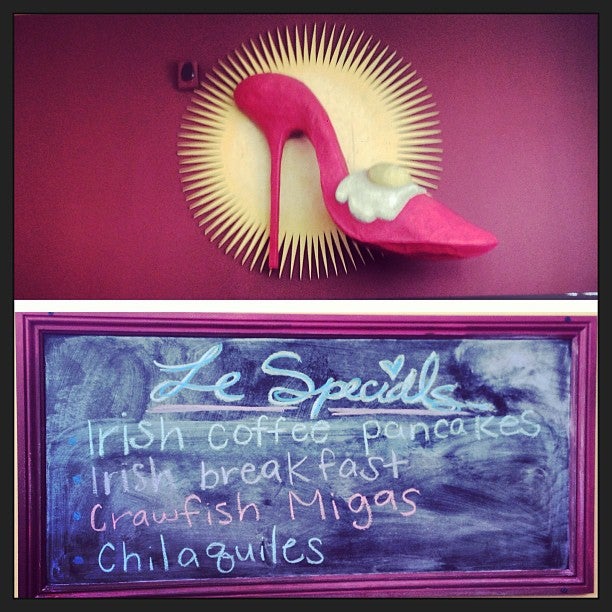 Le Specials
Irish coffee pancakes
Irish breakfast
Crawfish Migas
Chilaquiles